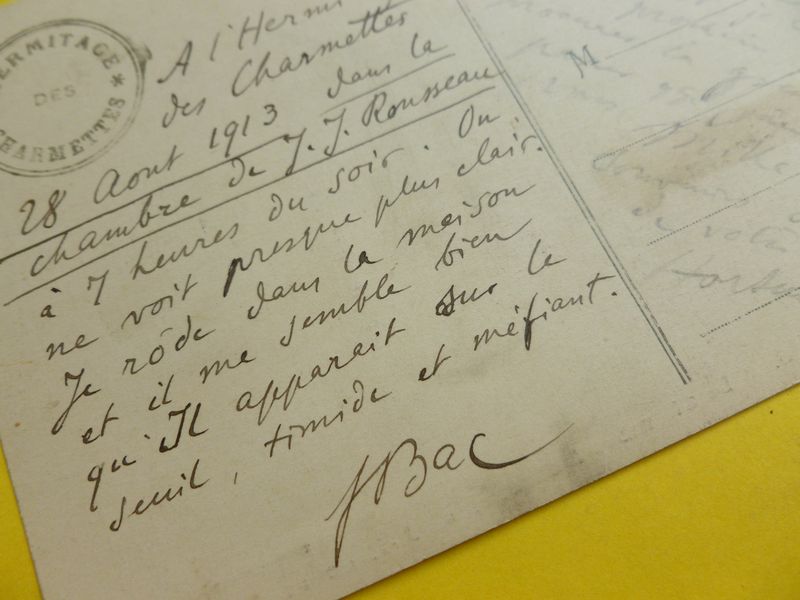 HERMITAGE
DES
CHARMETTES *
A l'Hermi
des Charmettes
28 Aout 1913 dans la
chambre de J. J. Rousseau
à 7 heures du soir. On
ne voit presque plus clair.
Je rôde dans la maison
et il me semble bien
qu'Il apparait sur le
seuil, timide et méfiant.
FBac
M